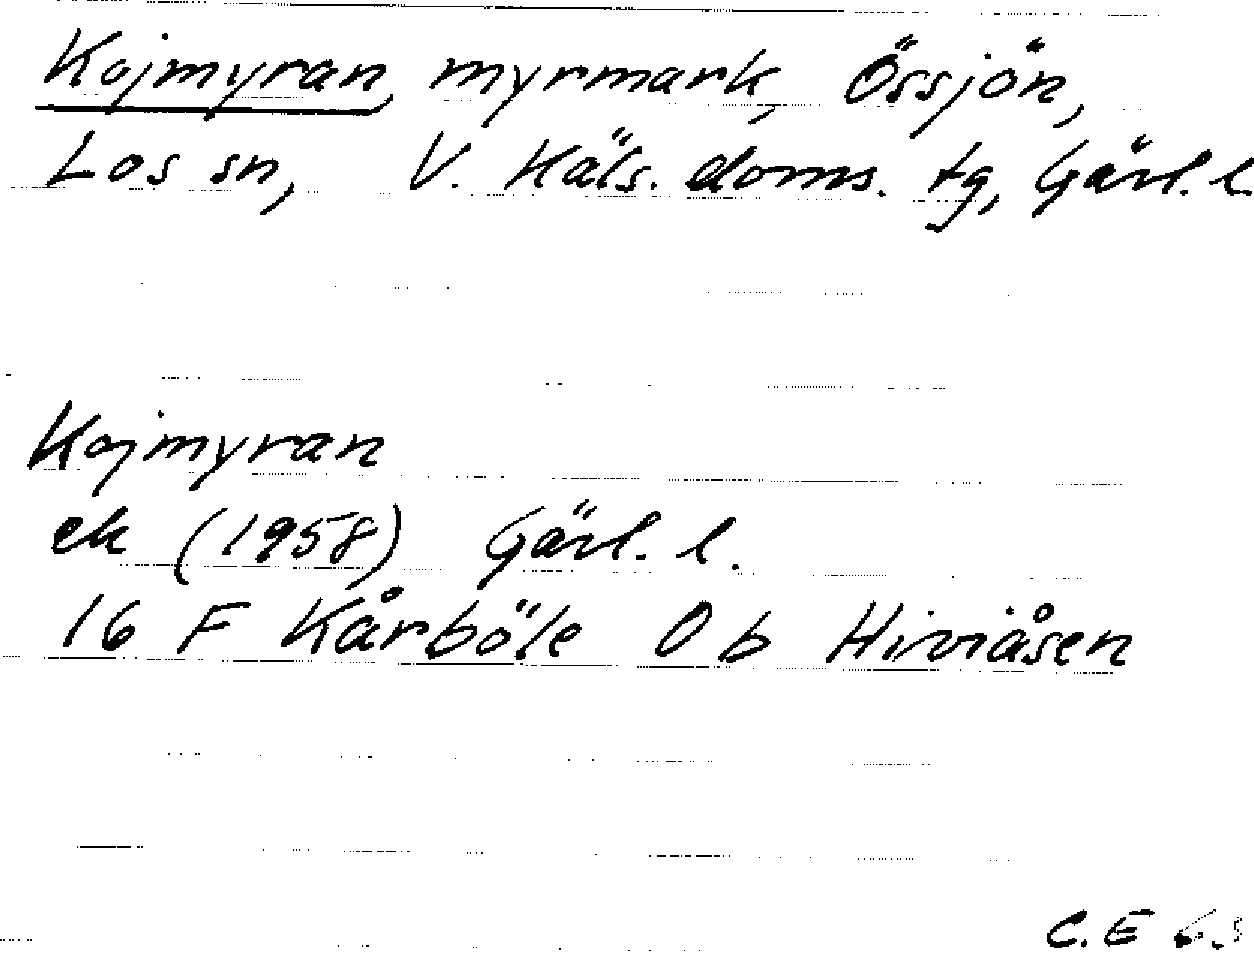 Kojmyran, myrmark, Össjön,
Los sn, V. Häls. doms. tg, Gävl. l.
Kojmyran
ek (1958) Gävl. l.
16 F Kårböle 0 b Hiviåsen
C.E 63